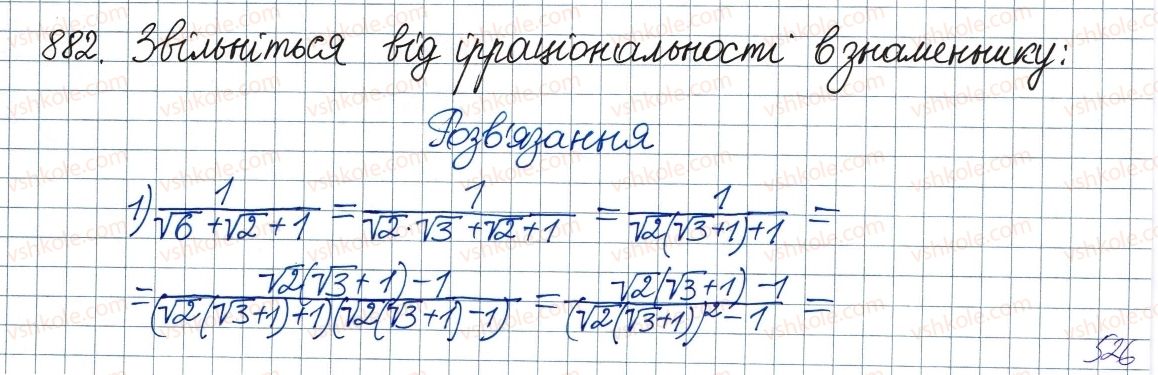 882. Звільніться від ірраціональності в знаменнику:
Розв'язання
1) \frac{1}{√6 + √2 + 1} = \frac{1}{√2 · √3 + √2 + 1} = \frac{1}{√2(√3 + 1) + 1} =
= \frac{√2(√3 + 1) - 1}{(√2(√3 + 1) + 1)(√2(√3 + 1) - 1)} = \frac{√2(√3 + 1) - 1}{(√2(√3 + 1))² - 1} =
526